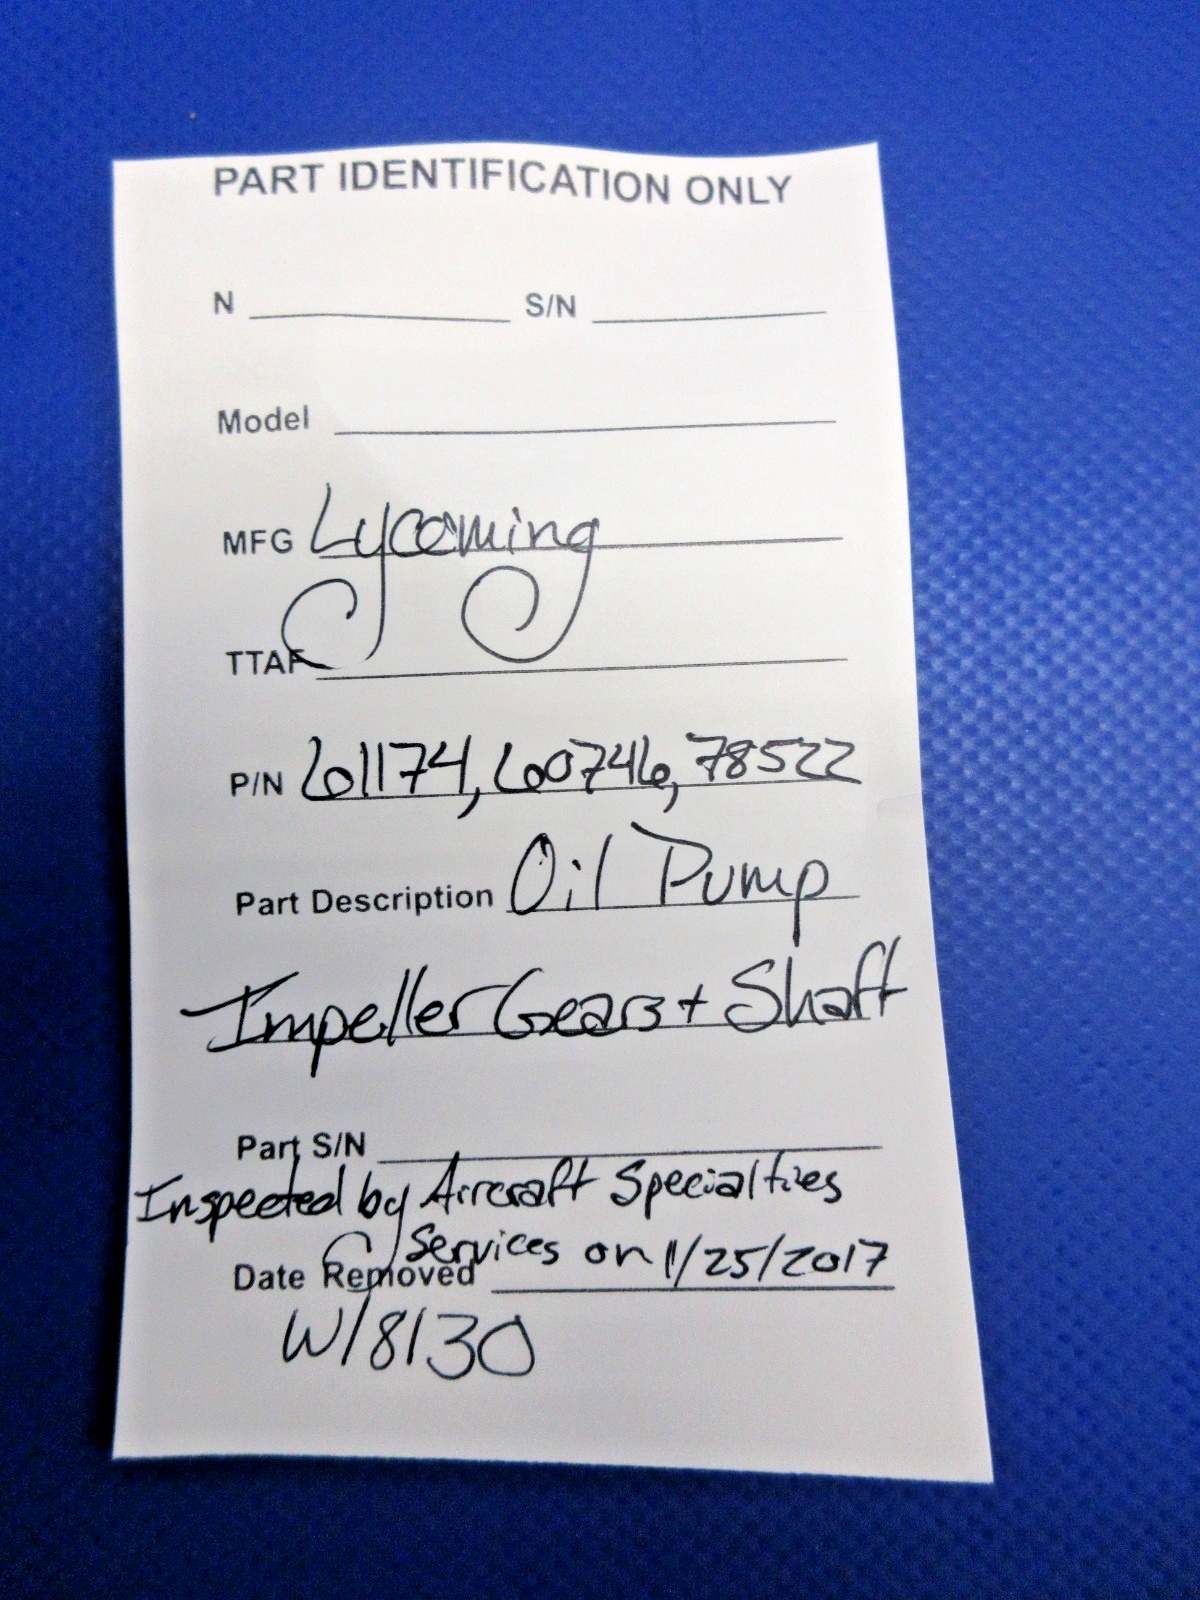 PART IDENTIFICATION ONLY
N S/N
Model
MFG Lycoming
TTAF
P/N 61174, 60746, 78522
Part Description Oil Pump
Impeller Gears + Shaft
Part S/N
Inspected by Aircraft Specialties
Services on 1/25/2017
Date Removed
W/8130